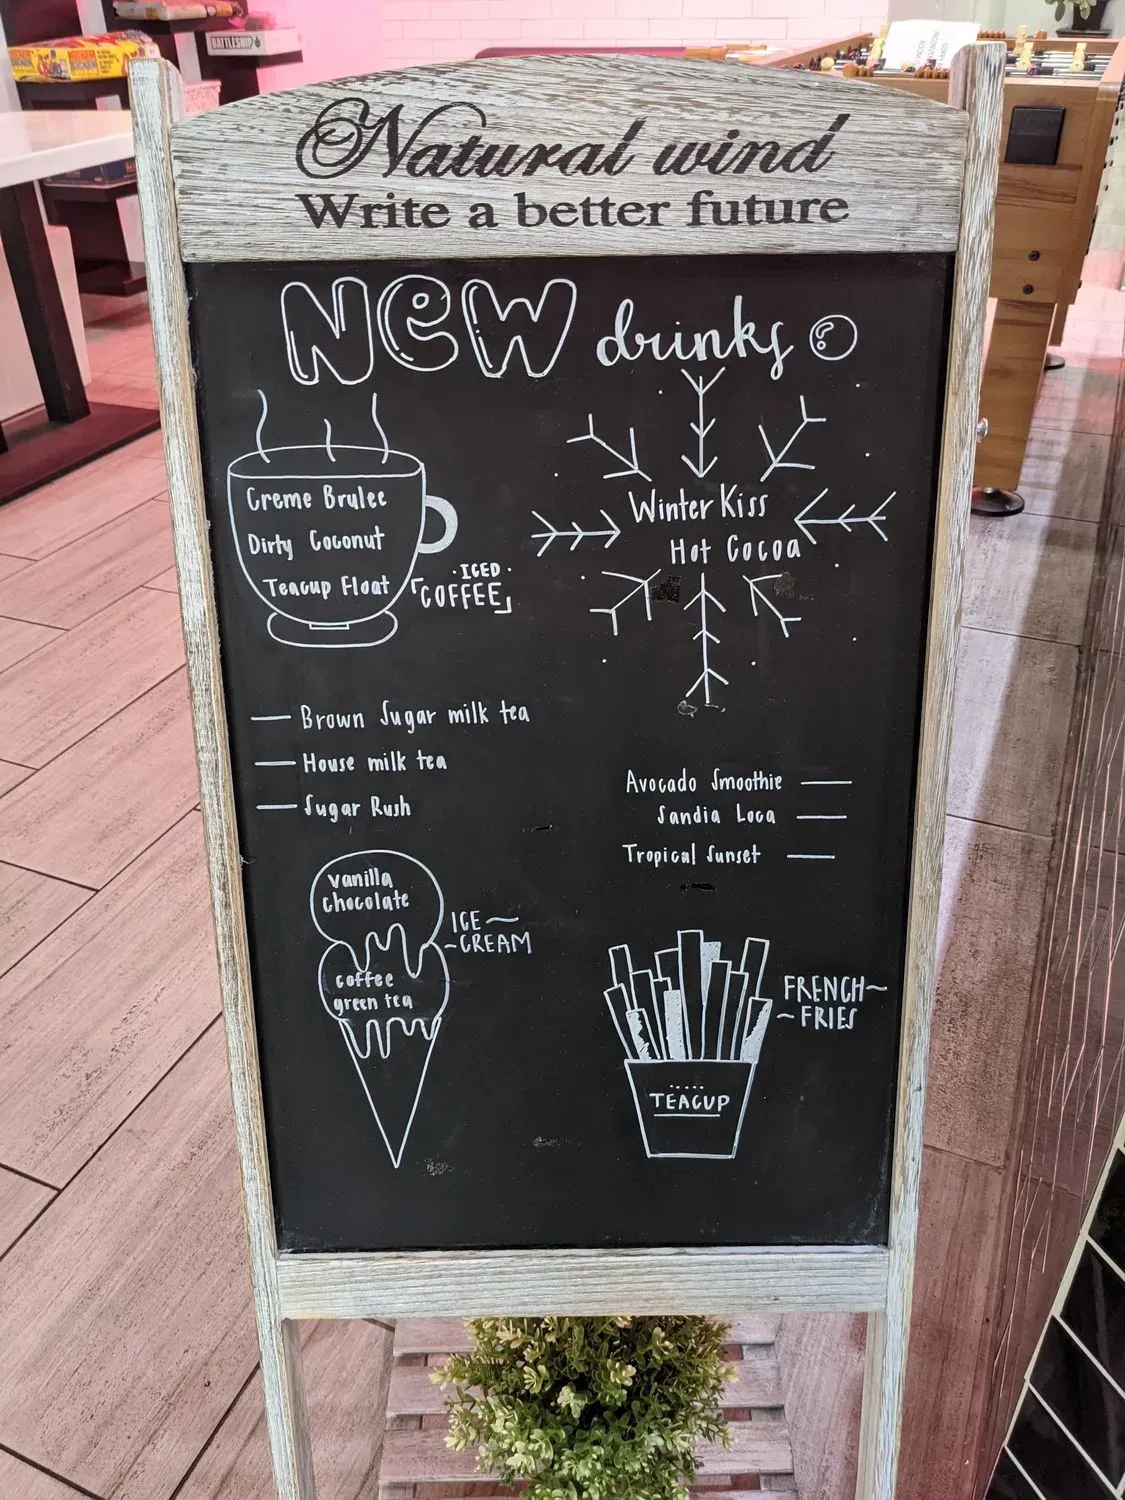 BATTLESHIP
Natural wind
Write a better future
New drinks
Creme Brulee
Dirty Coconut
Teacup Float
ICED
COFFEE
Winter Kiss
Hot Cocoa
Brown Sugar milk tea
House milk tea
Sugar Rush
Avocado Smoothie
Sandia Loca
Tropical Sunset
vanilla
chocolate
coffee
green tea
ICE
CREAM
FRENCH
FRIES
TEACUP